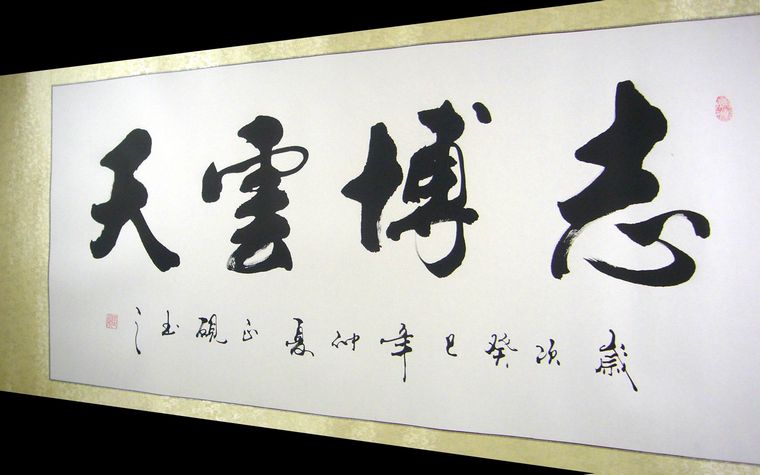 志博雲天
歲次癸巳年仲夏正硯书之